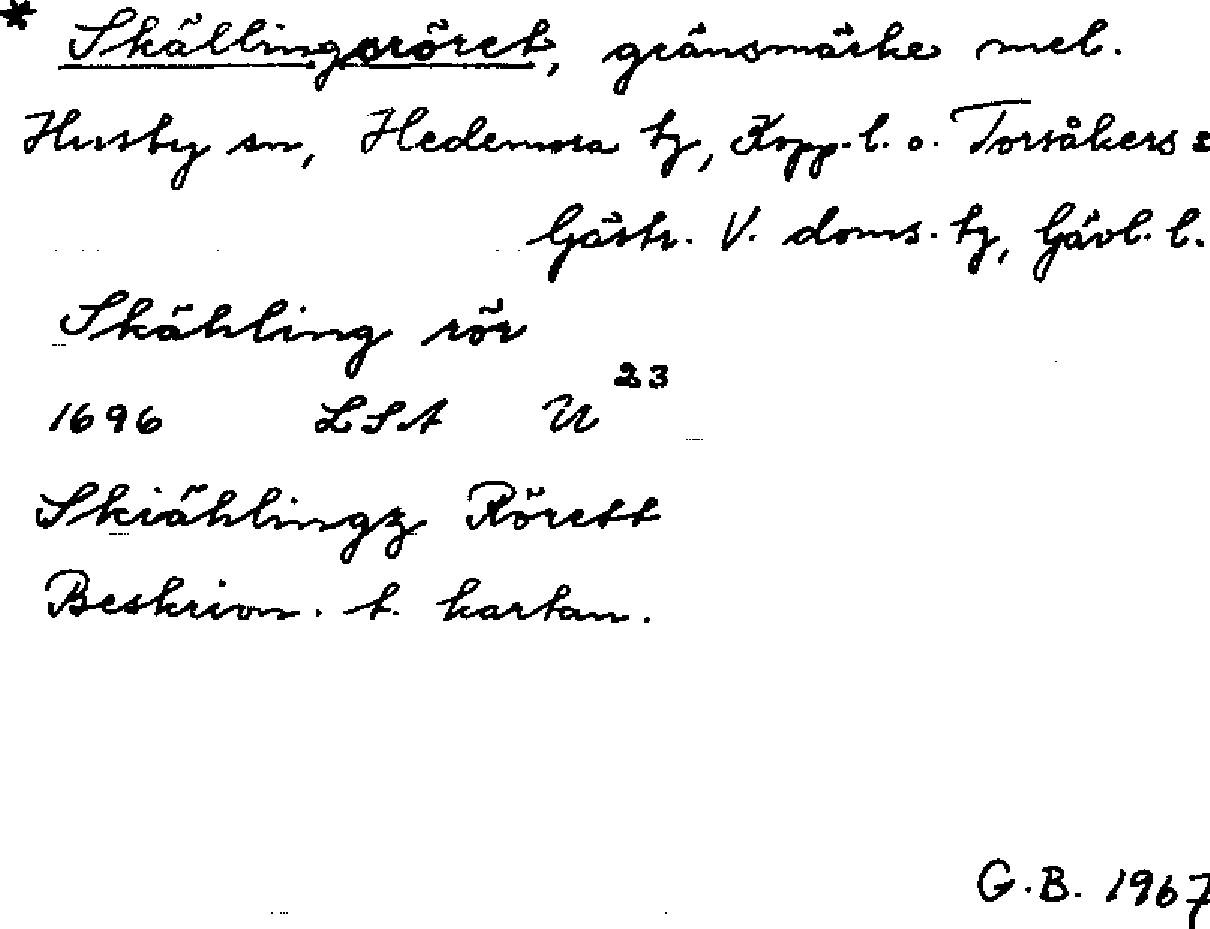 * Skällingsröret, gränsmärke mel.
Husby sn, Hedemora tg, Kopp. l. o. Torsåkers s
Gästr. V. doms. tg, Gävl. l.
Skähling rör
1696 LSA U 23
Skiählingz Rörett
Beskrivn. t. kartan.
G.B. 1967